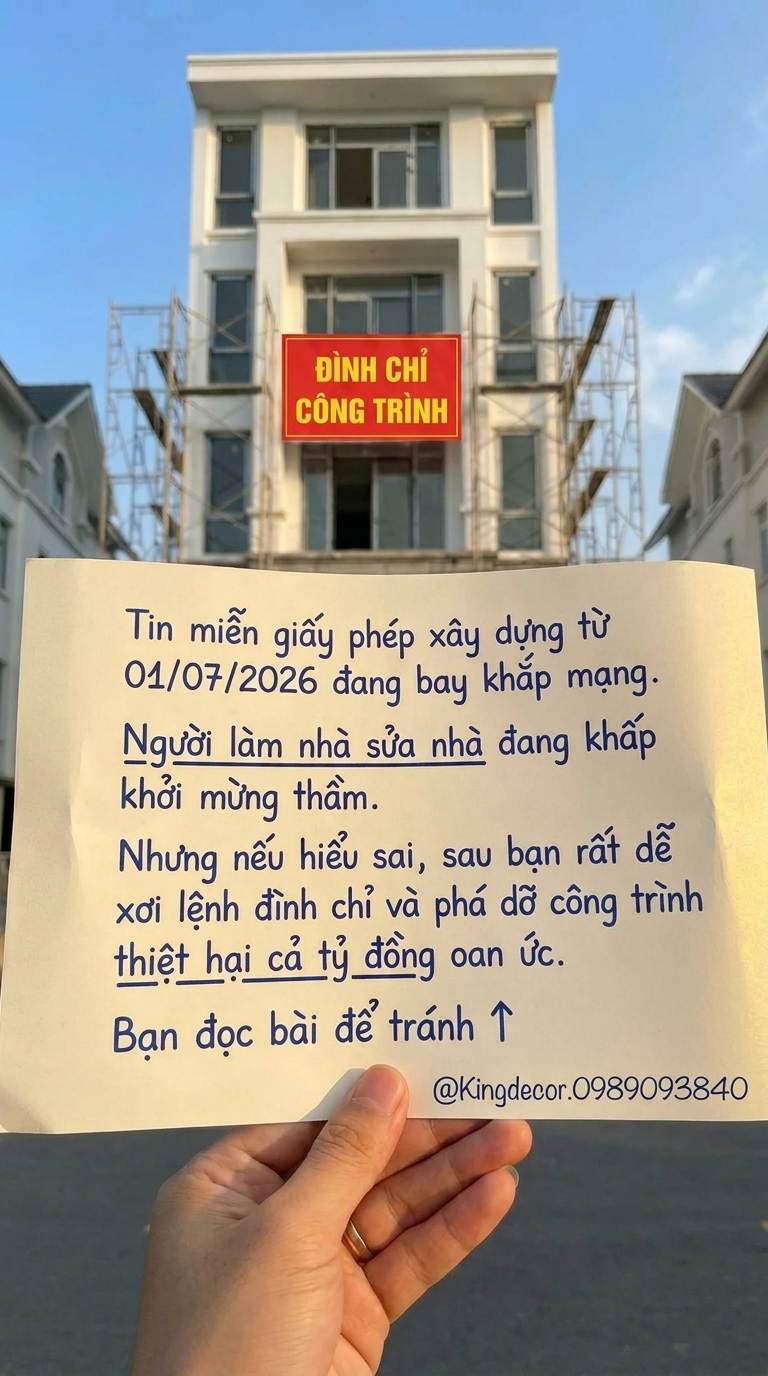 ĐÌNH CHỈ
CÔNG TRÌNH
Tin miễn giấy phép xây dựng từ
01/07/2026 đang bay khắp mạng.
Người làm nhà sửa nhà đang khấp
khởi mừng thầm.
Nhưng nếu hiểu sai, sau bạn rất dễ
xơi lệnh đình chỉ và phá dỡ công trình
thiệt hại cả tỷ đồng oan ức.
Bạn đọc bài để tránh ↑
@Kingdecor.0989093840